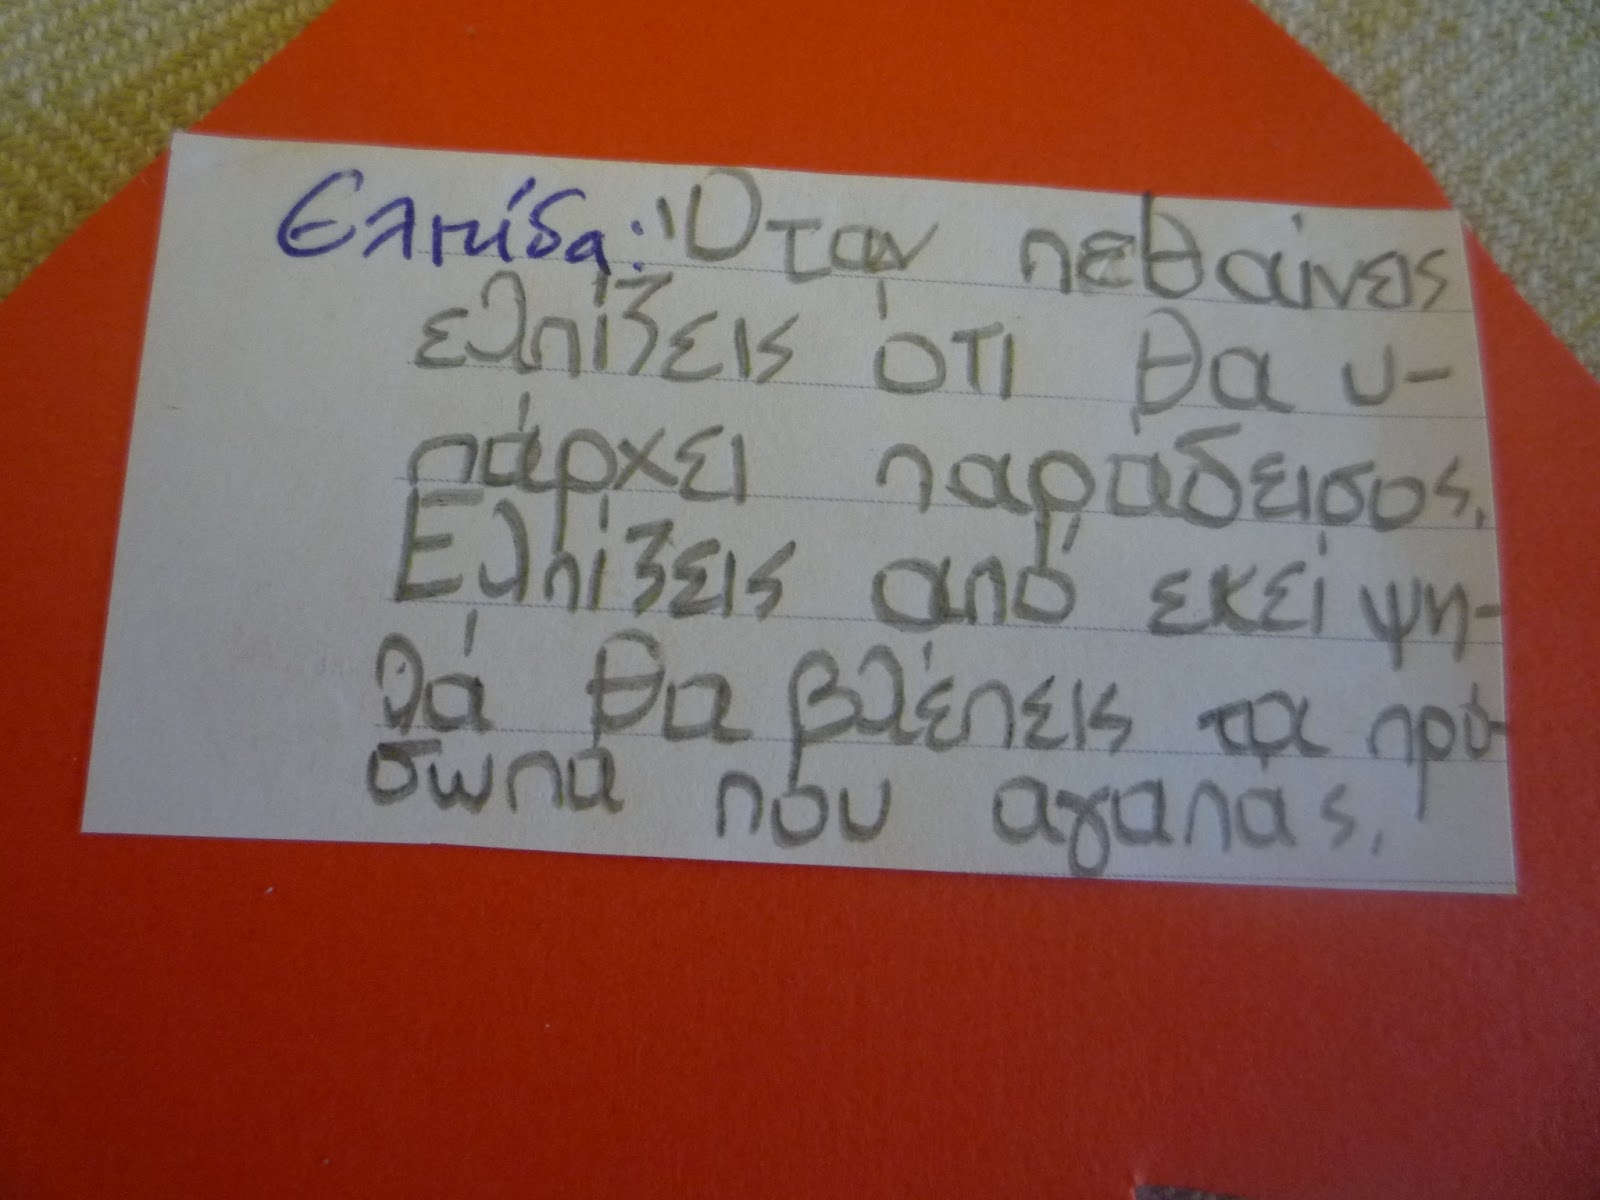 Ελπίδα: Όταν πεθαίνεις
ελπίζεις ότι θα υ-
πάρχει παράδεισος.
Ελπίζεις από εκεί ψη-
λά θα βλέπεις τα πρό-
σωπα που αγαπάς.